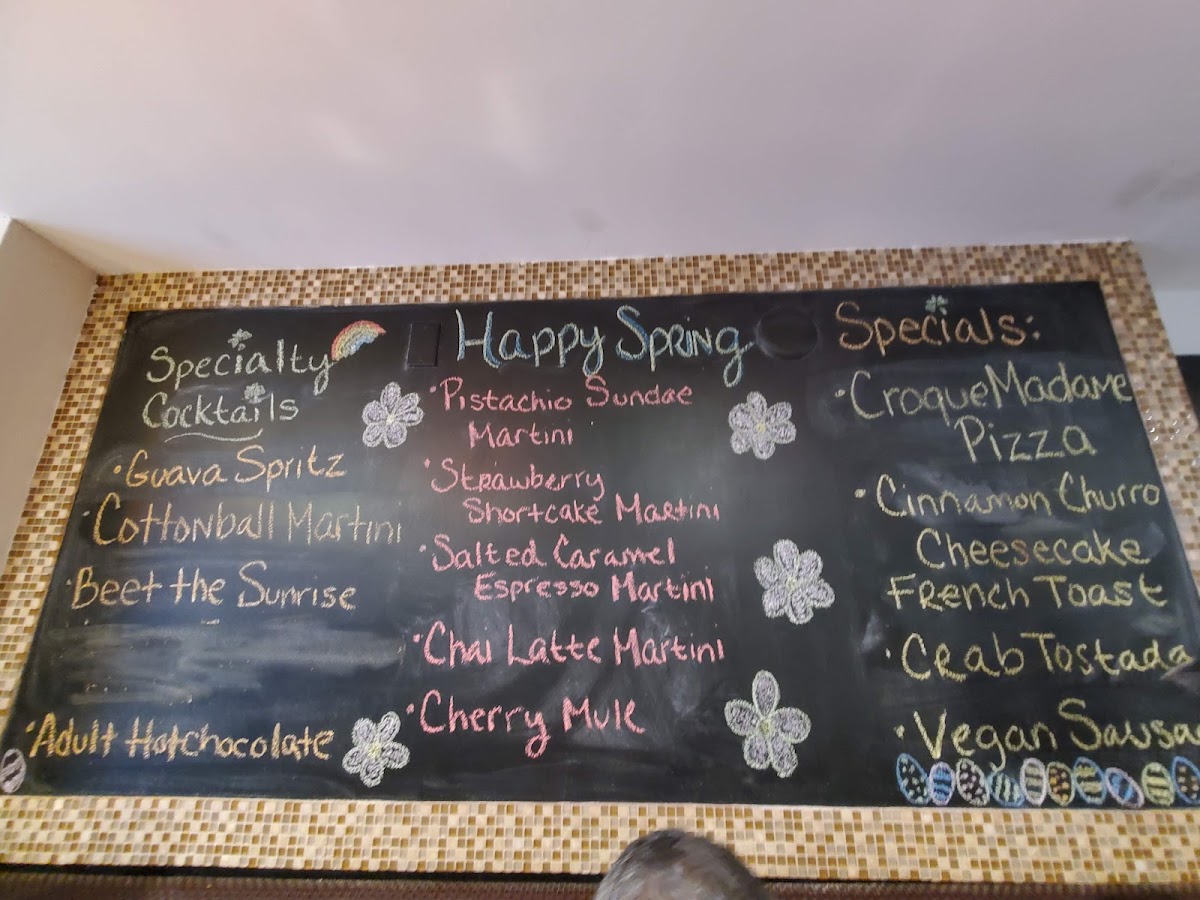 Specialty
Cocktails
·Guava Spritz
·Cottonball Martini
·Beet the Sunrise
·Adult Hotchocolate
Happy Spring
·Pistachio Sundae
Martini
·Strawberry
Shortcake Martini
·Salted Caramel
Espresso Martini
·Chai Latte Martini
·Cherry Mule
Specials:
·Croque Madame
Pizza
·Cinnamon Churro
Cheesecake
French Toast
·Crab Tostada
·Vegan Sausa